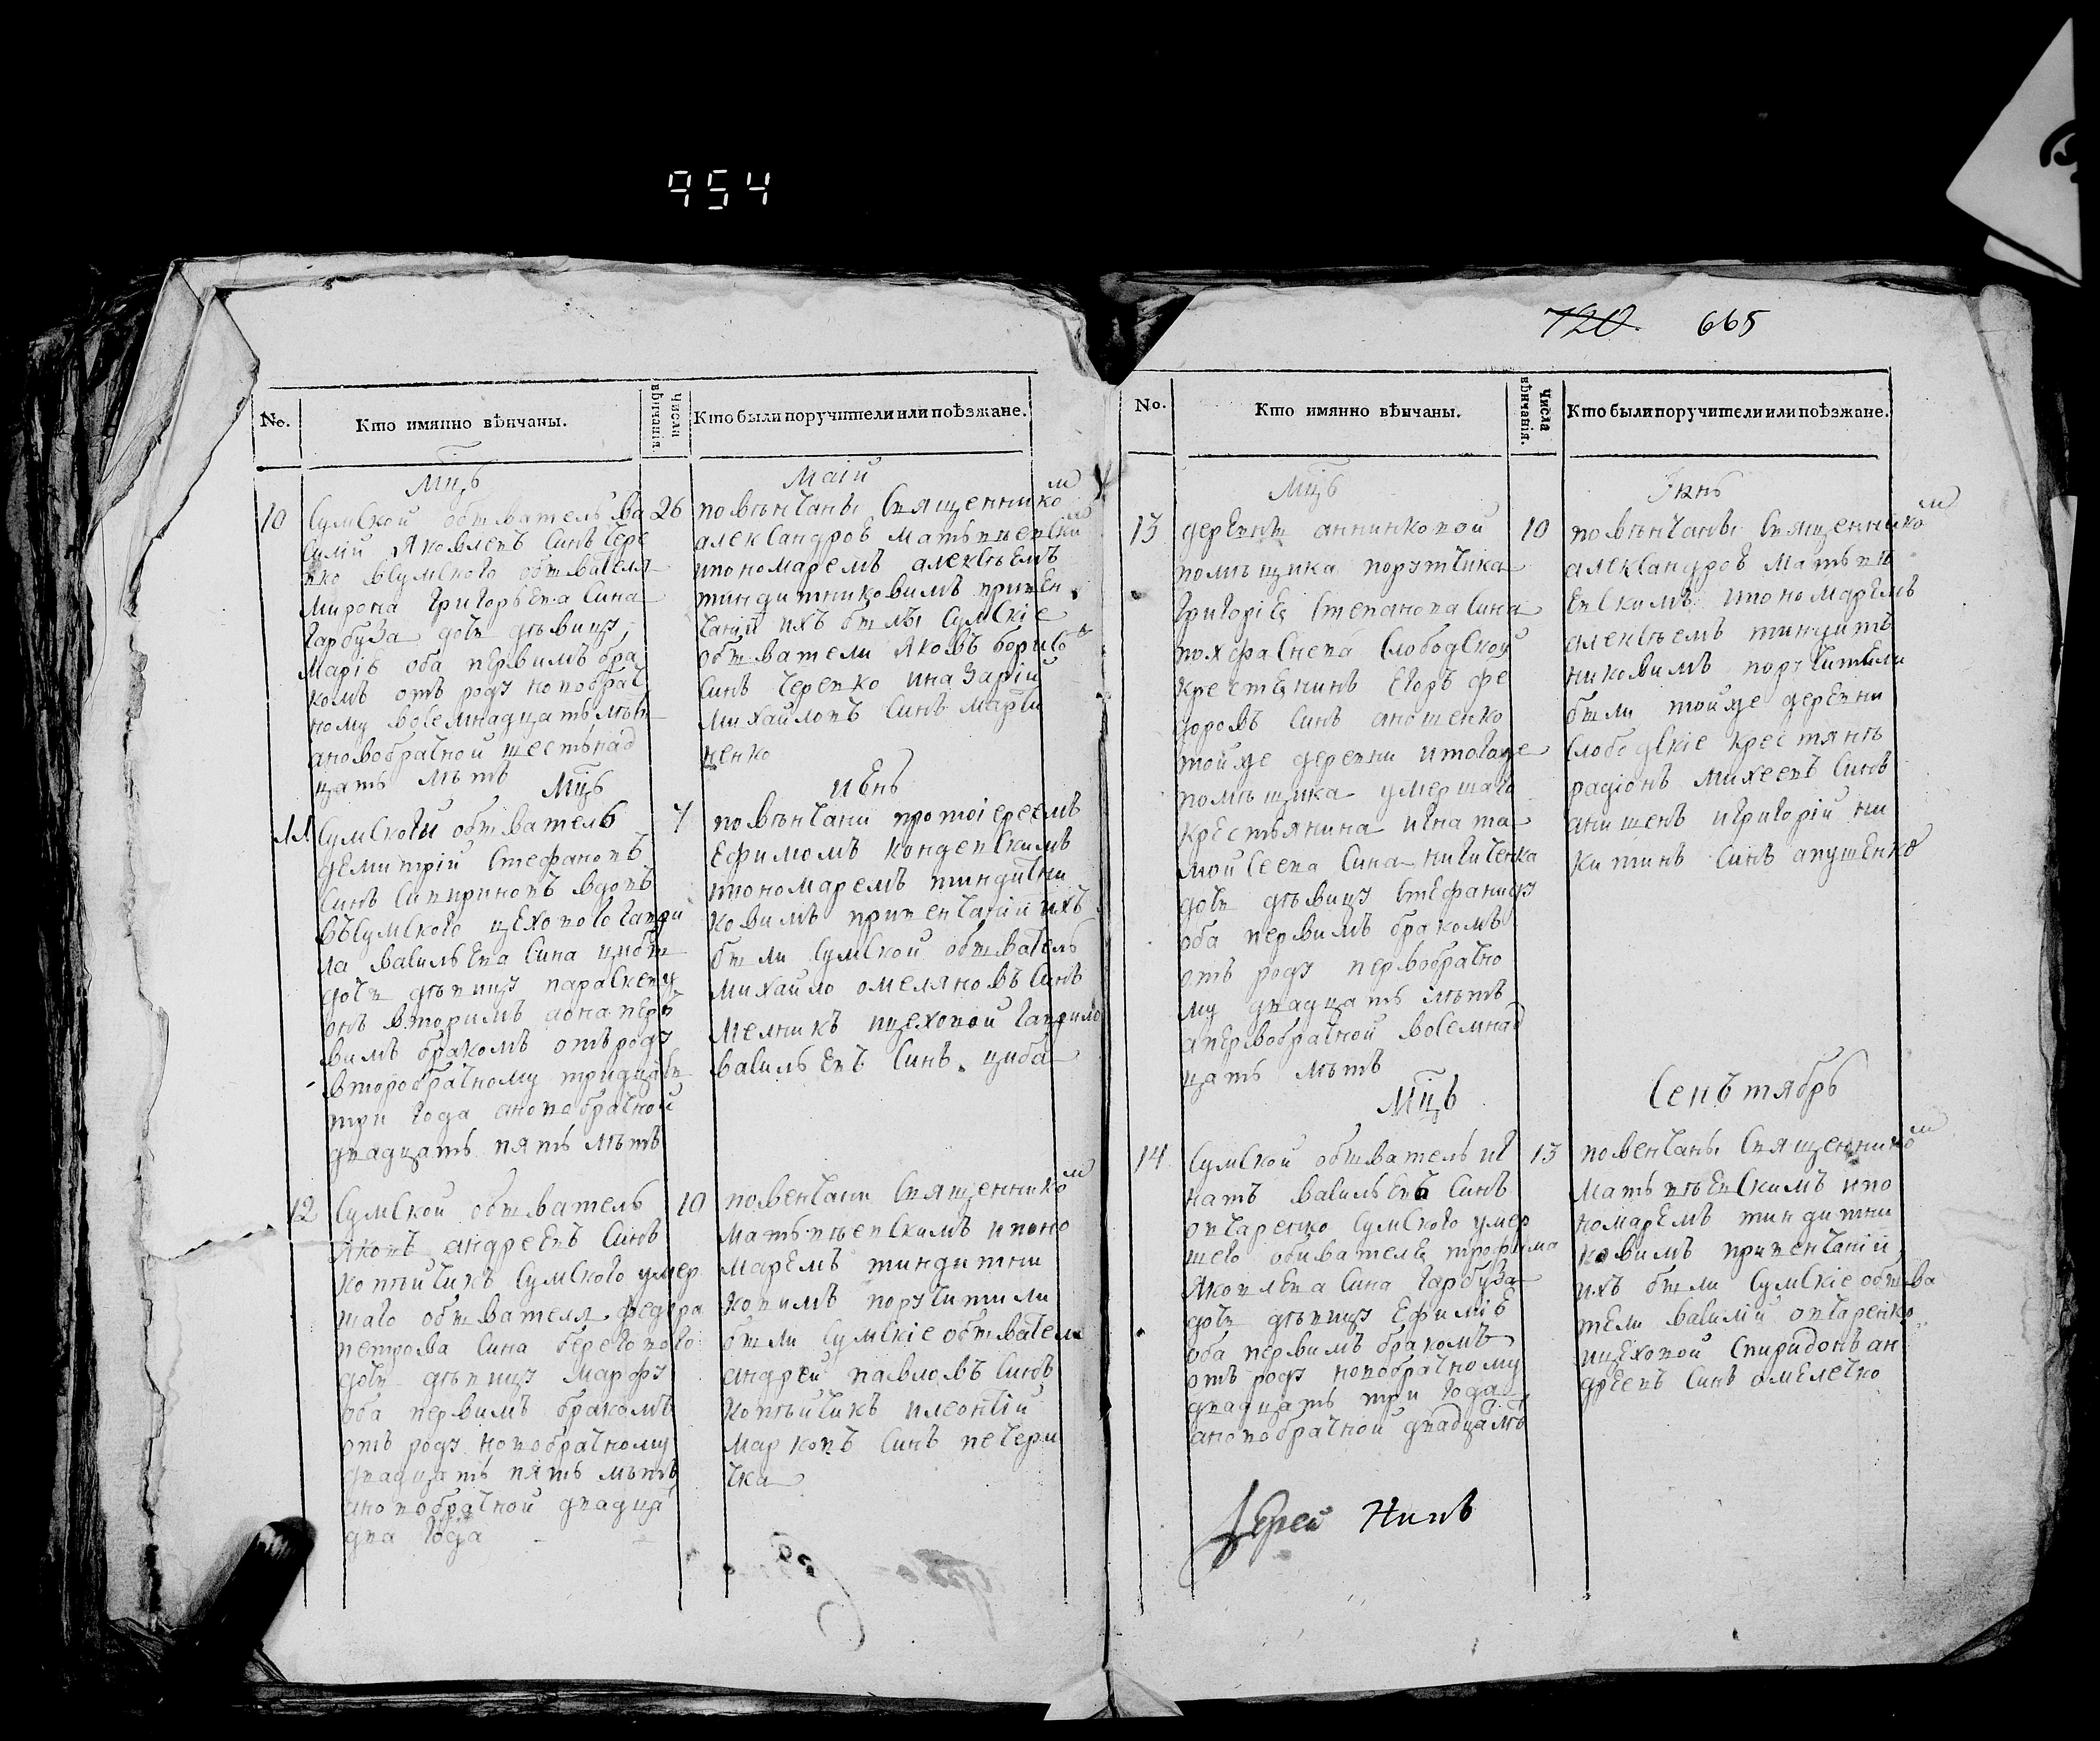 954
No.
Кто имянно вѣнчаны.
Числа вѣнчанія.
Кто были поручители или поѣзжане.
Мцъ
Маій
10
Сумской обыватель ва
силій Яковлевъ Синъ Чере
вко Всумского обывателя
Мирона Григорьева Сина
Гарбуза доч дѣвицу
Марію оба первимъ бра
комъ отъ роду новобрач
ному восемнадцать лѣт
ановобрачной шестьнад
цать лѣтъ
26
повѣнчаны Священником
александров Матьвѣевски
ипономаремъ алексѣемъ
тиндитниковимъ привен
чаніи ихъ были Сумскіе
обыватели Яковъ борисов
Синъ Черевко иназарій
Михайловъ Синъ Марти
ненко
Мцъ
июнь
11
Сумской обыватель
Демитрій Стефановъ
Синъ вдовъ
Въсумского цехового гаври
ла васильева Сина цибы
доч дѣвицу параскеву
онъ вторимъ иона пер
вимъ бракомъ отъ роду
второбрачному тридцать
три года ановобрачной
двадцать пять лѣтъ
7
повѣнчани протоіереемъ
Ефимомъ кондевскимъ
ипономаремъ тиндитни
ковимъ привенчаніи ихъ
были Сумской обыватель
Михайло омеляновъ Синъ
Мелникъ ицеховой гаврило
васильевъ Синъ циба
12
Сумской обыватель
Яковъ андреевъ Синъ
копѣйчикъ Сумского умер
шаго обывателя федора
петрова Сина берегового
доч дѣвицу Марфу
оба первимъ бракомъ
отъ роду новобрачному
двадцать пять лѣтъ
ановобрачной двадца
два года
10
повенчани Священником
Матьвѣевскимъ ипоно
Маремъ тиндитни
ковимъ поручители
были Сумскіе обывател
андрей павловъ Синъ
копѣйчикъ илеонтій
Марковъ Синъ печери
чка
720 665
No.
Кто имянно вѣнчаны.
Числа вѣнчанія.
Кто были поручители или поѣзжане.
Мцъ
Іюнь
13
деревнѣ аннинковой
помѣщика порутчика
Григорія Степанова Сина
Слободской
крестянинъ Егоръ фе
доровъ Синъ аношенко
тойже деревни итогоже
помѣщика умершаго
крестьянина игната
Мойсеева Сина
доч дѣвицу Стефаниду
оба первимъ бракомъ
отъ роду первобрачно
му двадцать лѣтъ
апервобрачной восемнад
цать лѣтъ
10
повѣнчаны Священником
александров Матьвѣ
евскимъ ипономаремъ
алексѣемъ тиндитъ
никовимъ поручители
были тойже деревни
Слободскіе крестянъ
радіонъ Михеевъ Синъ
анишевъ игригорій ни
китинъ Синъ апушенко
Мцъ
Сенътябрь
14
Сумской обыватель иг
натъ васильевъ Синъ
овчаренко Сумского умер
шего обивателя трофима
Яковлева Сина гарбуза
доч дѣвицу Ефимію
оба первимъ бракомъ
отъ роду новобрачному
двадцать три года
ановобрачной двадцать
13
повенчаны Священником
Матьвѣевскимъ ипо
номаремъ тиндитни
ковимъ привенчаніи
ихъ были Сумскіе обыва
тели василій овчаренко
ицеховой Спиридонъ ан
дреевъ Синъ омелечко
Іерей